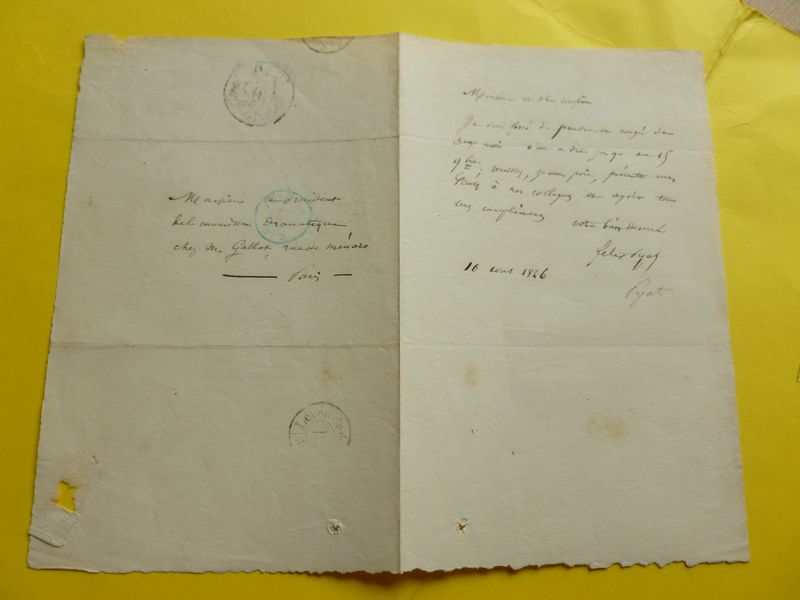 Monsieur le Président
de la commission Dramatique
chez M. Gallot, rue de Ménars
Paris
Monsieur et cher confrère
Je suis forcé de prendre un congé de
deux mois c'est a dire jusqu'au 15
9bre, veuillez, je vous prie, présenter mes
à nos collègues et agréer tous
mes compliments
votre bien dévoué
Félix Pyat
10 aout 1846
Pyat